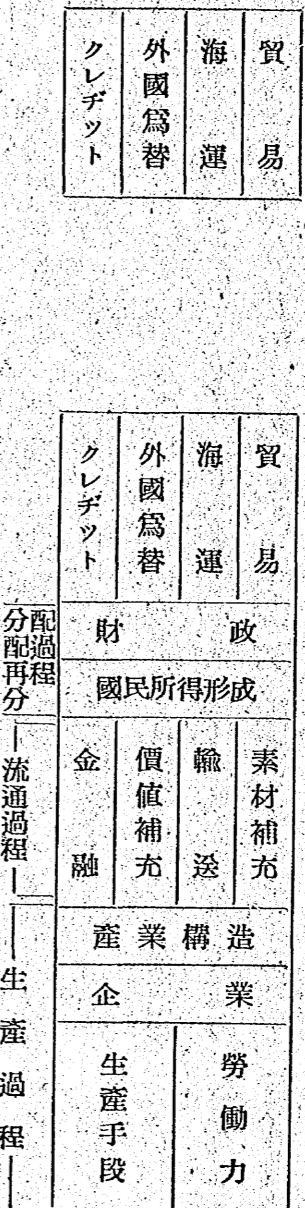 貿易
海運
外國爲替
クレヂット
貿易
海運
外國爲替
クレヂット
財政
國民所得形成
素材補充
輸送
價値補充
金融
産業構造
企業
勞働力
生産手段
分配再分
配過程
流通過程
生産過程